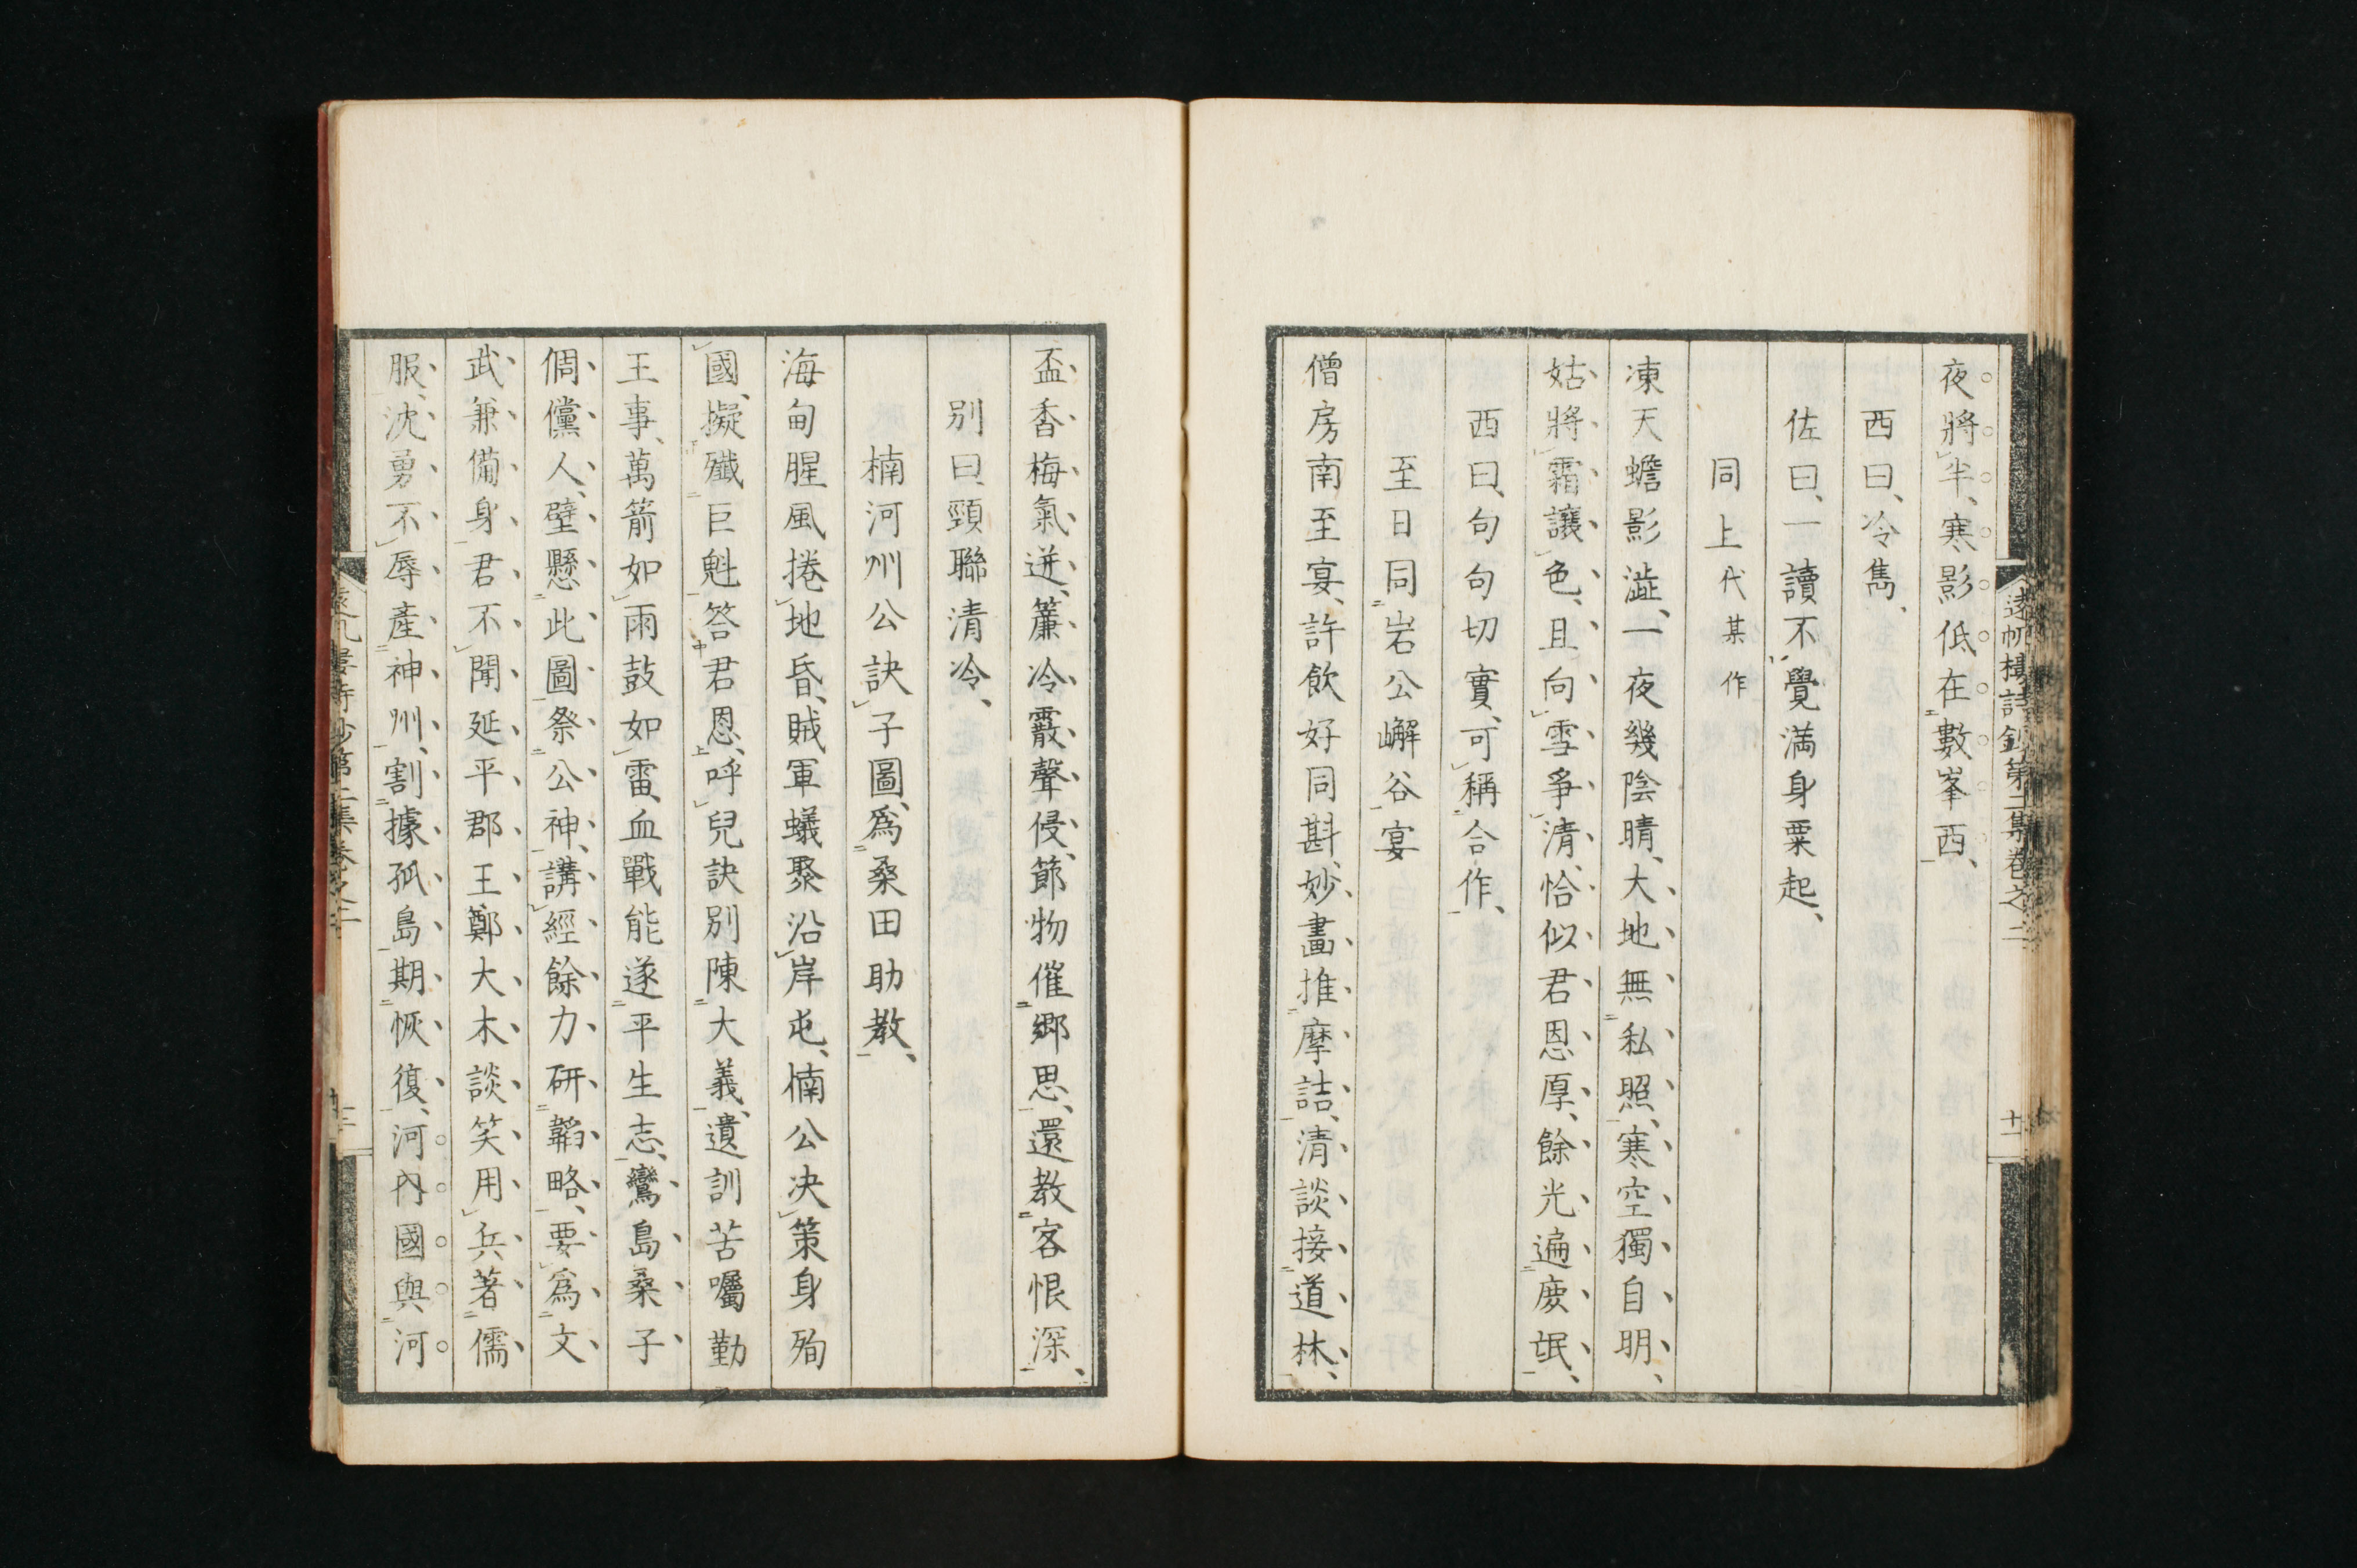 夜將半、寒影低在數峯西、
西曰、冷雋、
佐曰、一讀不覺滿身粟起、
同上代某作
凍天蟾影澁、一夜幾陰晴、大地無私照、寒空獨自明、
姑將霜讓色、且向雪爭清、恰似君恩厚、餘光遍庶氓、
西曰、句句切實、可稱合作、
至日同岩公嶰谷宴
僧房南至宴、許飲好同斟、妙畫推摩詰、清談接道林、
盃香梅氣迸、簾冷霰聲侵、節物催鄉思、還教客恨深、
別曰、頸聯清冷、
楠河州公訣子圖、爲桑田助教、
海甸腥風捲地昏、賊軍蟻聚沿岸屯、楠公決策身殉
國、擬殲巨魁答君恩、呼兒訣別陳大義、遺訓苦囑勤
王事、萬箭如雨鼓如雷、血戰能遂平生志、鸞島桑子
倜儻人、壁懸此圖祭公神、講經餘力研韜略、要爲文
武兼備身、君不聞延平郡王鄭大木、談笑用兵著儒
服、沈勇不辱產神州、割據孤島期恢復、河內國與河